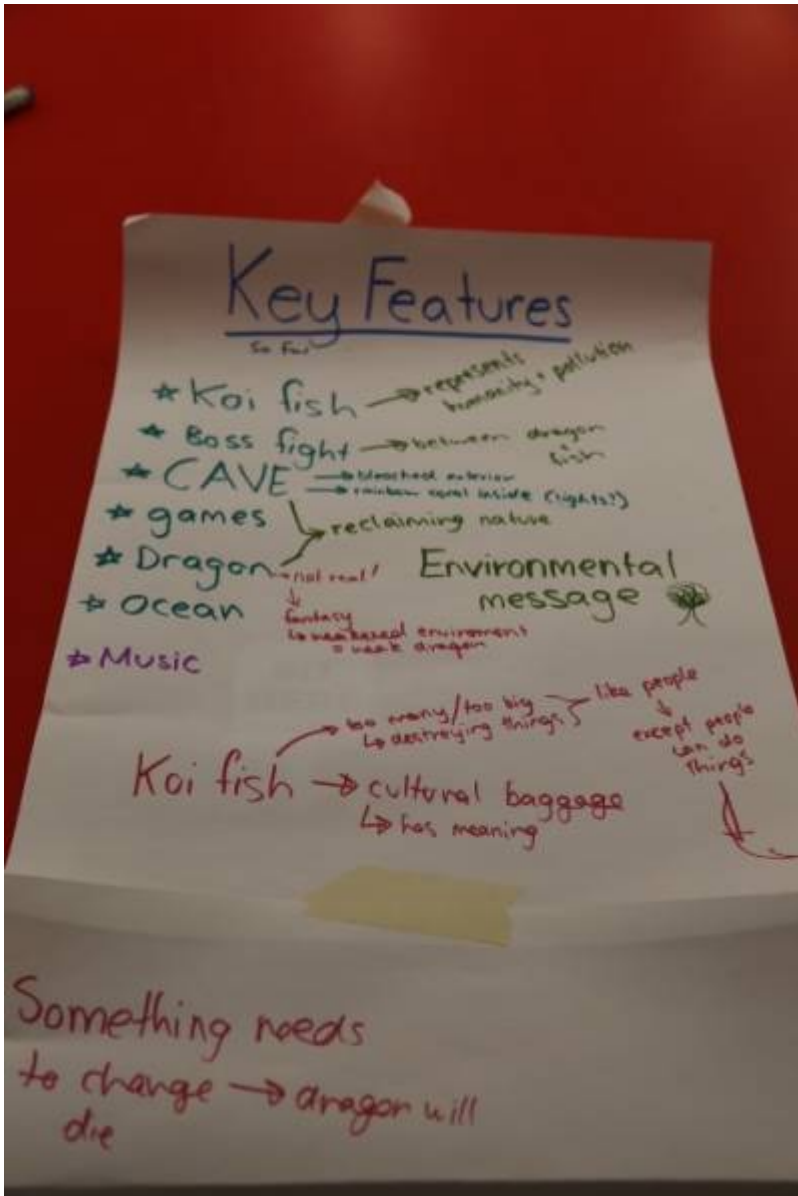 Key Features
So Far
☆ Koi fish → represents
humanity + pollution
☆ Boss fight → between dragon
+ fish
☆ CAVE → bleached exterior
→ rainbow coral inside (lights?)
☆ games
→ reclaiming nature
☆ Dragon → not real!
↓
fantasy
↳ weakened environment
= weak dragon
Environmental
message
☆ Ocean
☆ Music
Koi fish → too many/too big
↳ destroying things
like people
↓
except people
can do
things
→ cultural baggage
↳ has meaning
Something needs
to change → dragon will
die